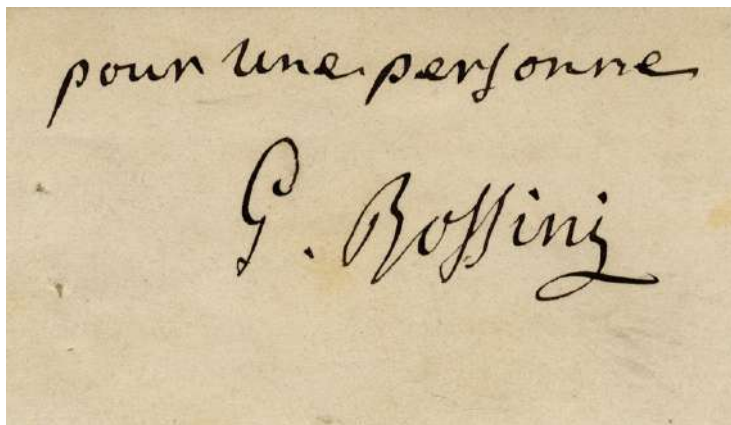 pour une personne
G. Rossini